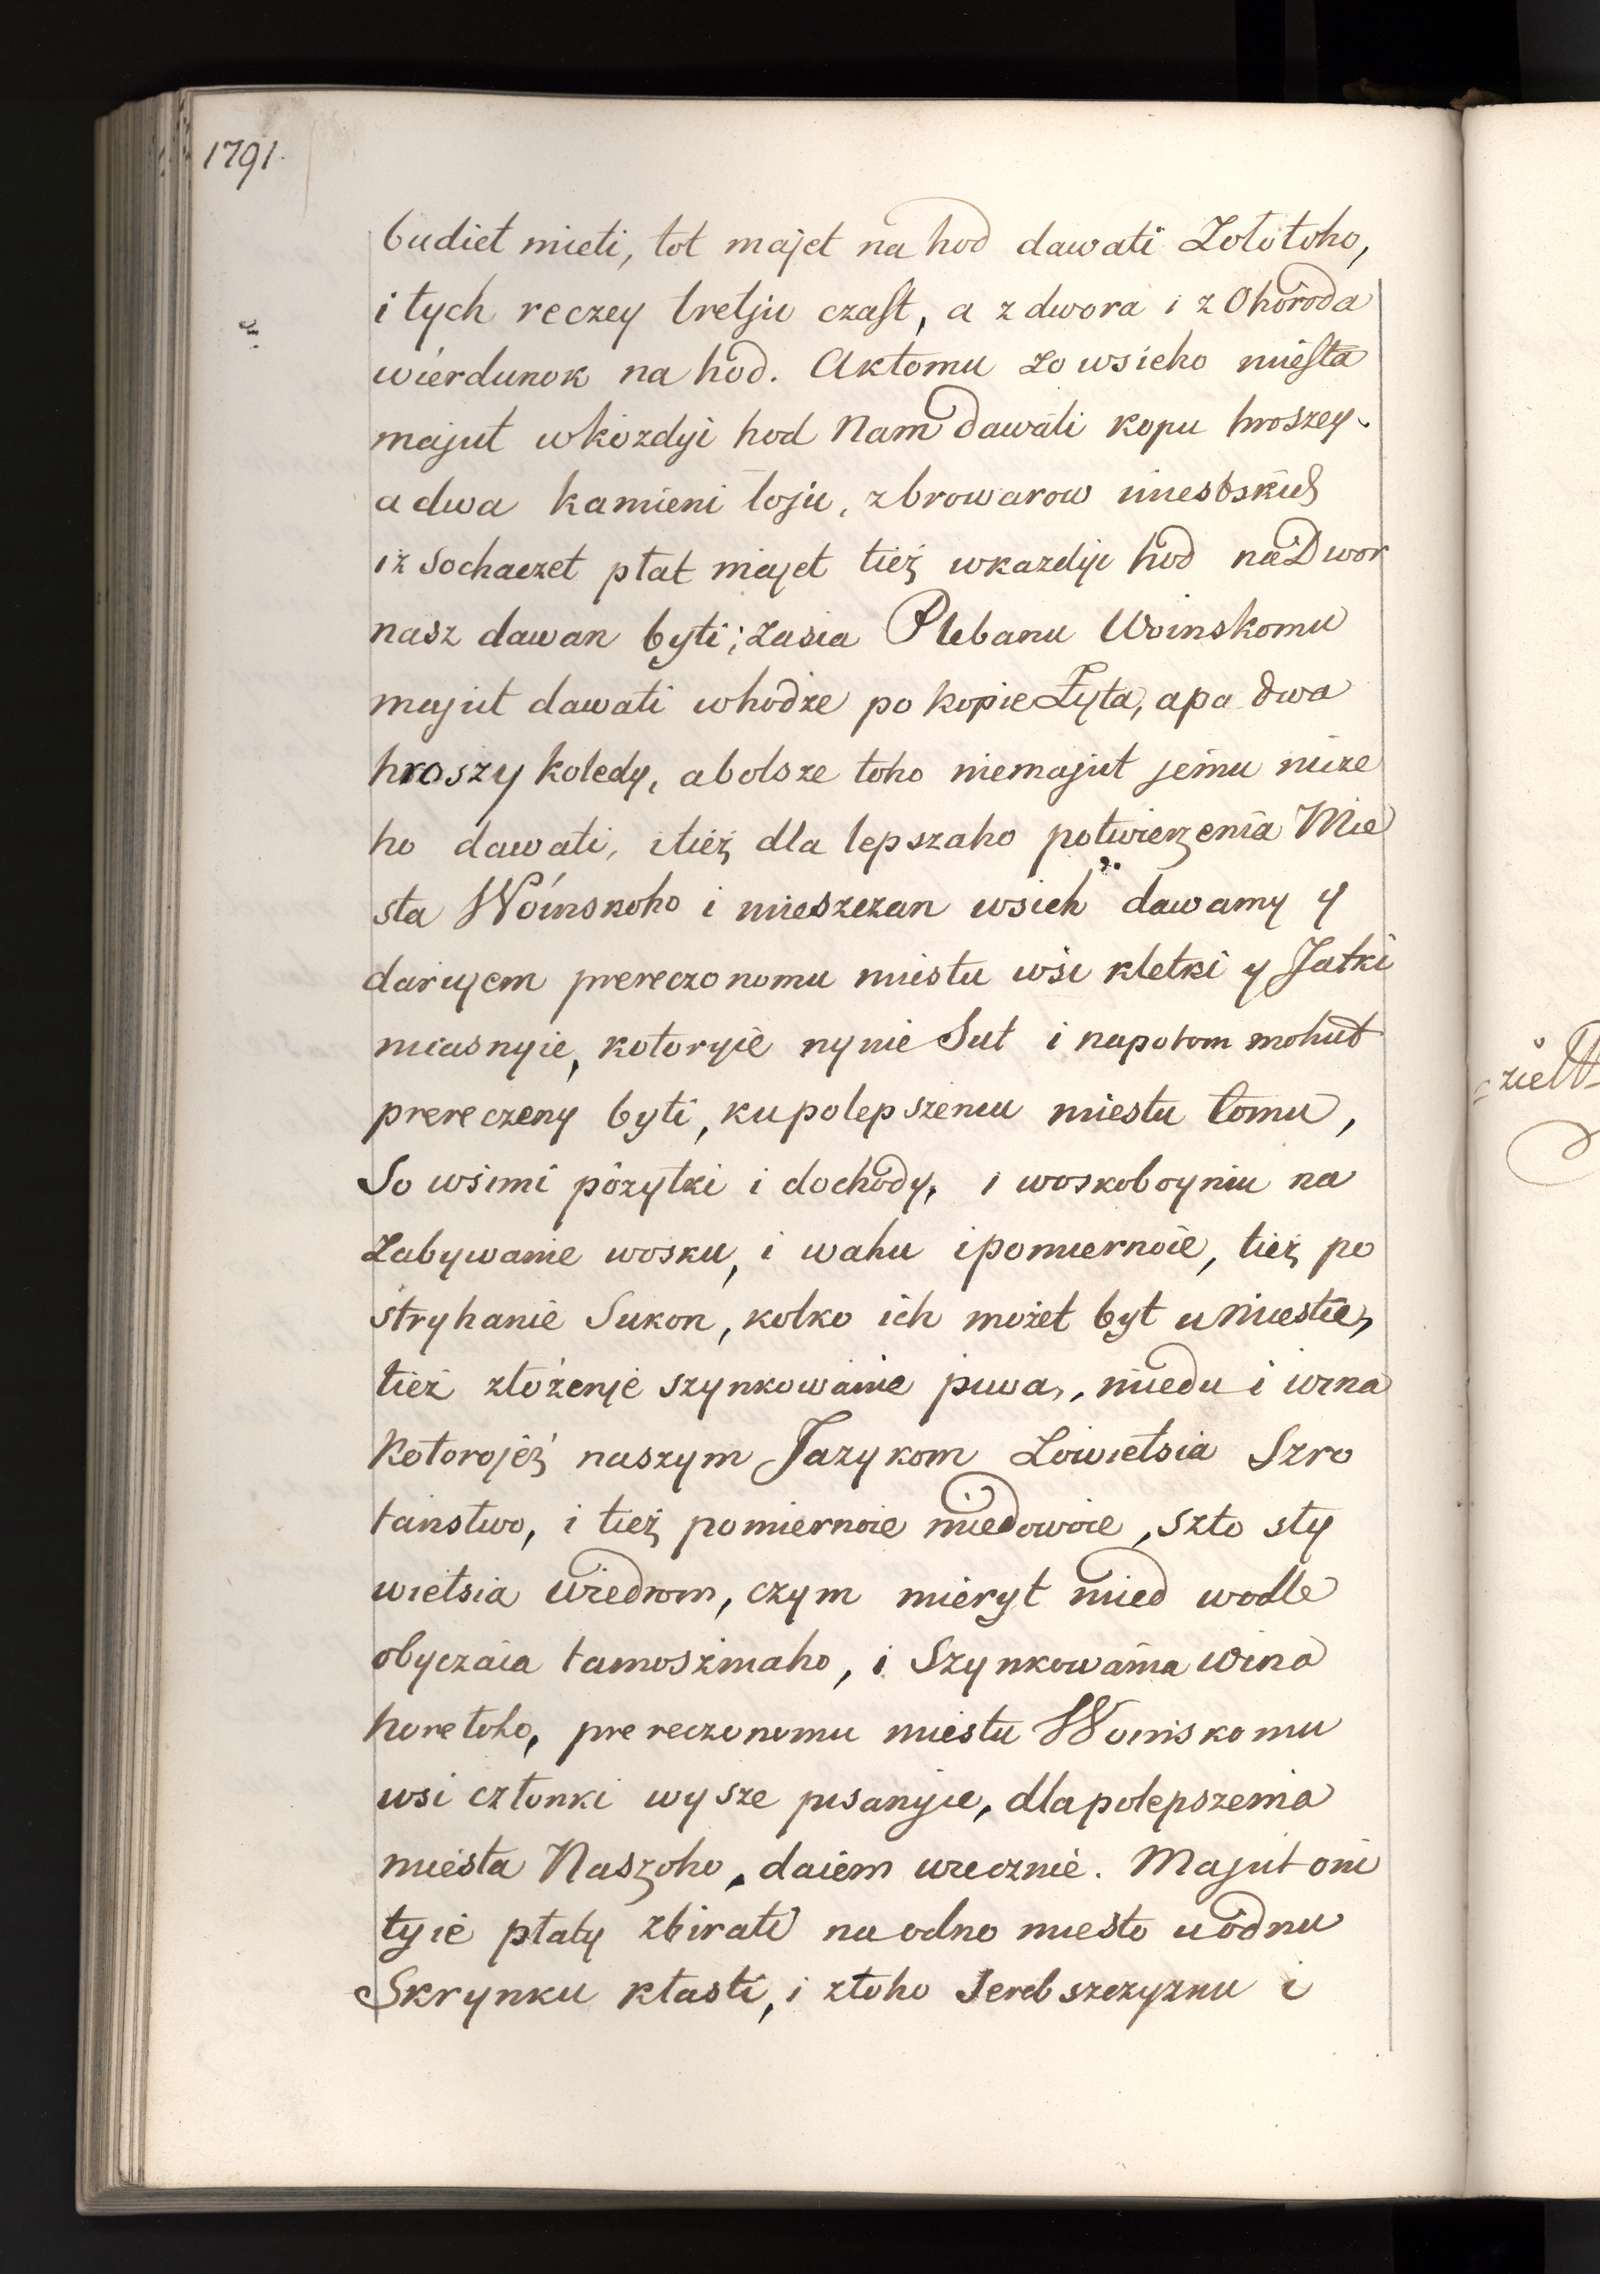 1791.
budiet mieti, tot majet na hod dawati Zołotoho,
i tych reczey tretju czast, a z dwora i z Ohoroda
wierdunok na hod. Aktomu zo wsieho miesta
majut wkozdyi hod Nam dawati kopu hroszey.
a dwa kamieni łoju, z browarow miestskich
iz Sochaczet płat majet tież wkazdyi hod na Dwor
nasz dawan byti; zasia Plebanu Woinskomu
majut dawati whodze po kopie Żyta, a po dwa
hroszy koledy, a bolsze toho niemajut jemu nicze
ho dawati, i tież dla lepszaho potwierzenia Mie
sta Woinskoho i mieszczan wsich dawamy y
darujem prereczonomu miestu wsi kletki y Jatki
miasnyie, kotoryie nynie Sut i napotom mohut
prereczeny byti, ku polepszeniu miestu tomu,
So wsimi pożytki i dochody, i woskoboyniu na
Zabywanie wosku, i wahu i pomiernoie, tież po
stryhanie Sukon, kolko ich możet byt u Miestie,
tież złożenje szynkowanie piwa, miedu i wina
Kotorojeż naszym Jazykom Zowietsia Szro
tanstwo, i tież pomiernoie miedowoie, szto sły
wietsia wiedrom, czym mieryt mied wodle
obyczaia tamosznaho, i Szynkowania wina
horetoho, prereczonomu miestu Woinskomu
wsi członki wysze pisanyie, dla polepszenia
miesta Naszoho, daiem wiecznie. Majut oni
tyie płaty zbirati na odno miesto u odnu
Skrynku kłasti, i z toho Serebszczyznu i
zielt